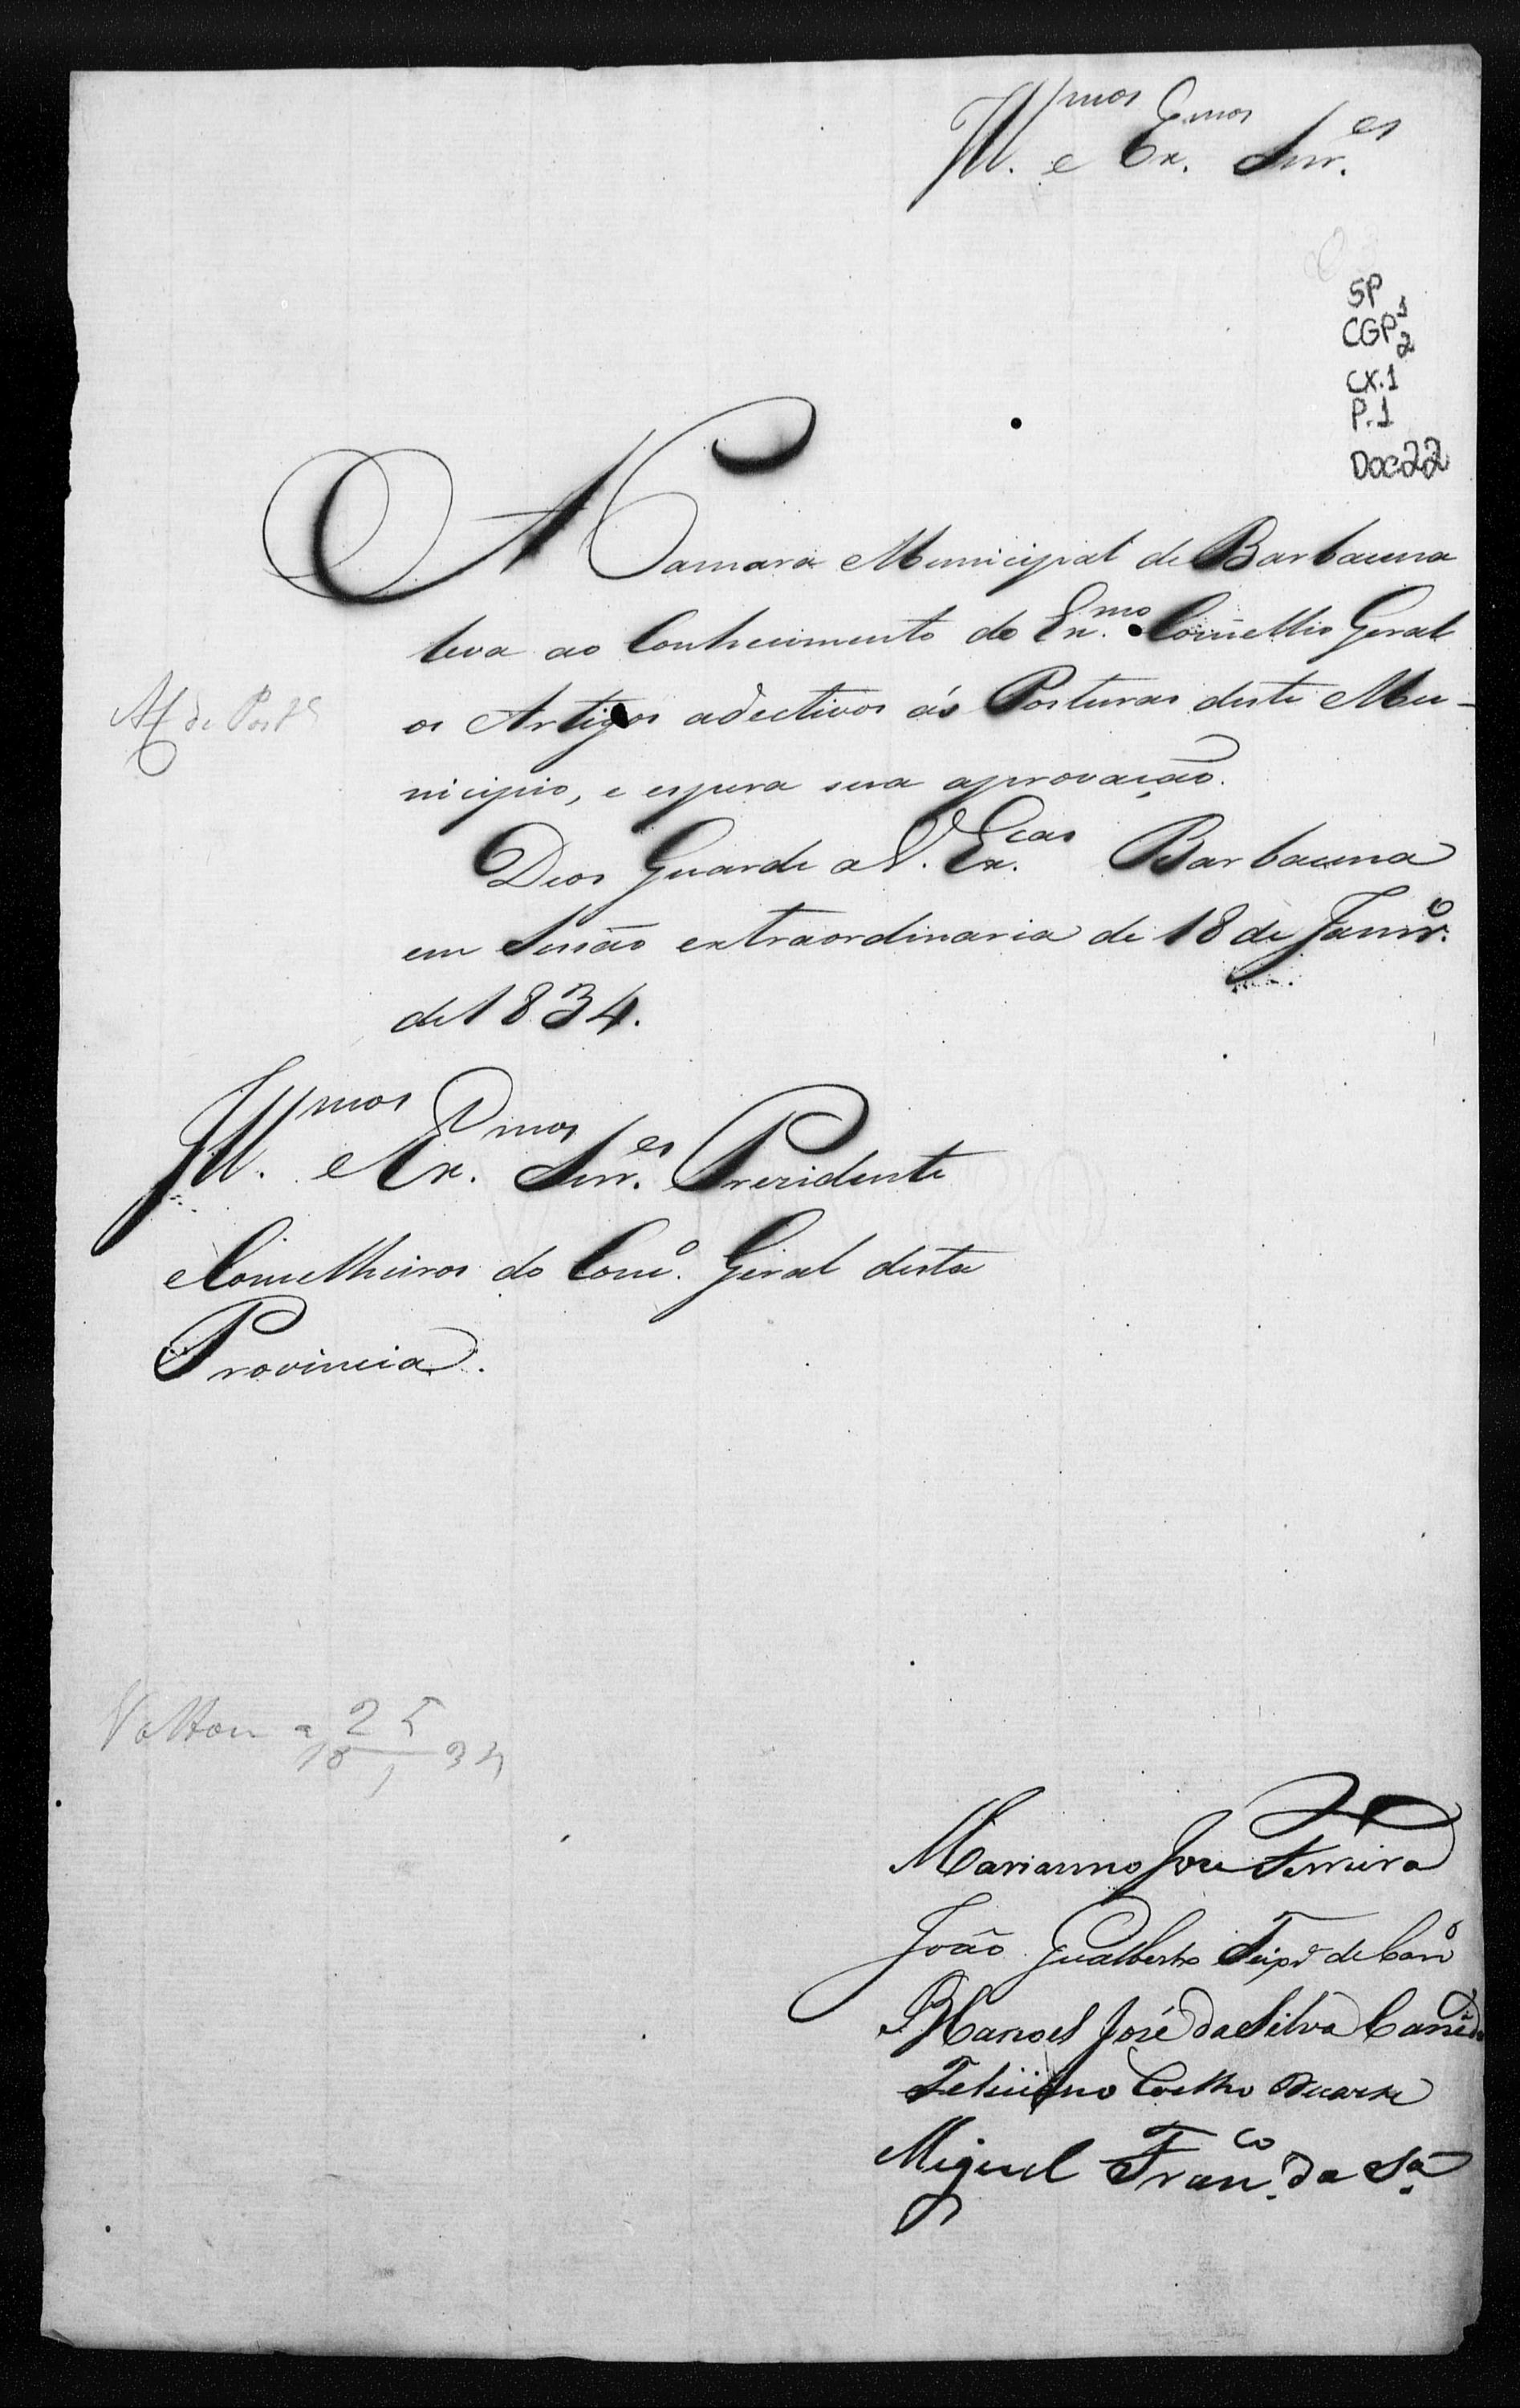 Ill.mos e Ex.mos Snr.es
SP
CGP 1 2
CX.1
P.1
Doc22
A Camara Municipal de Barbacena
leva ao Conhecimento do Ex.mo Conselho Geral
os Artigos adectivos ás Posturas deste Mu-
nicipio, e espera sua aprovação.
Deos Guarde a V. Ex.cas Barbacena
em Sessão extraordinaria de 18 de Janr.o
de 1834.
Ill.mos e Ex.mos Snr.es Prezidente
e Conselheiros do Cons.o Geral desta
Provincia.
de Post
25
18 1 34
Marianno José Ferreira
João Gualberto Teix.ra de Carv.o
Manoel José da Silva Canedo
Feliciano Coelho Duarte
Miguel Fran.co da S.a